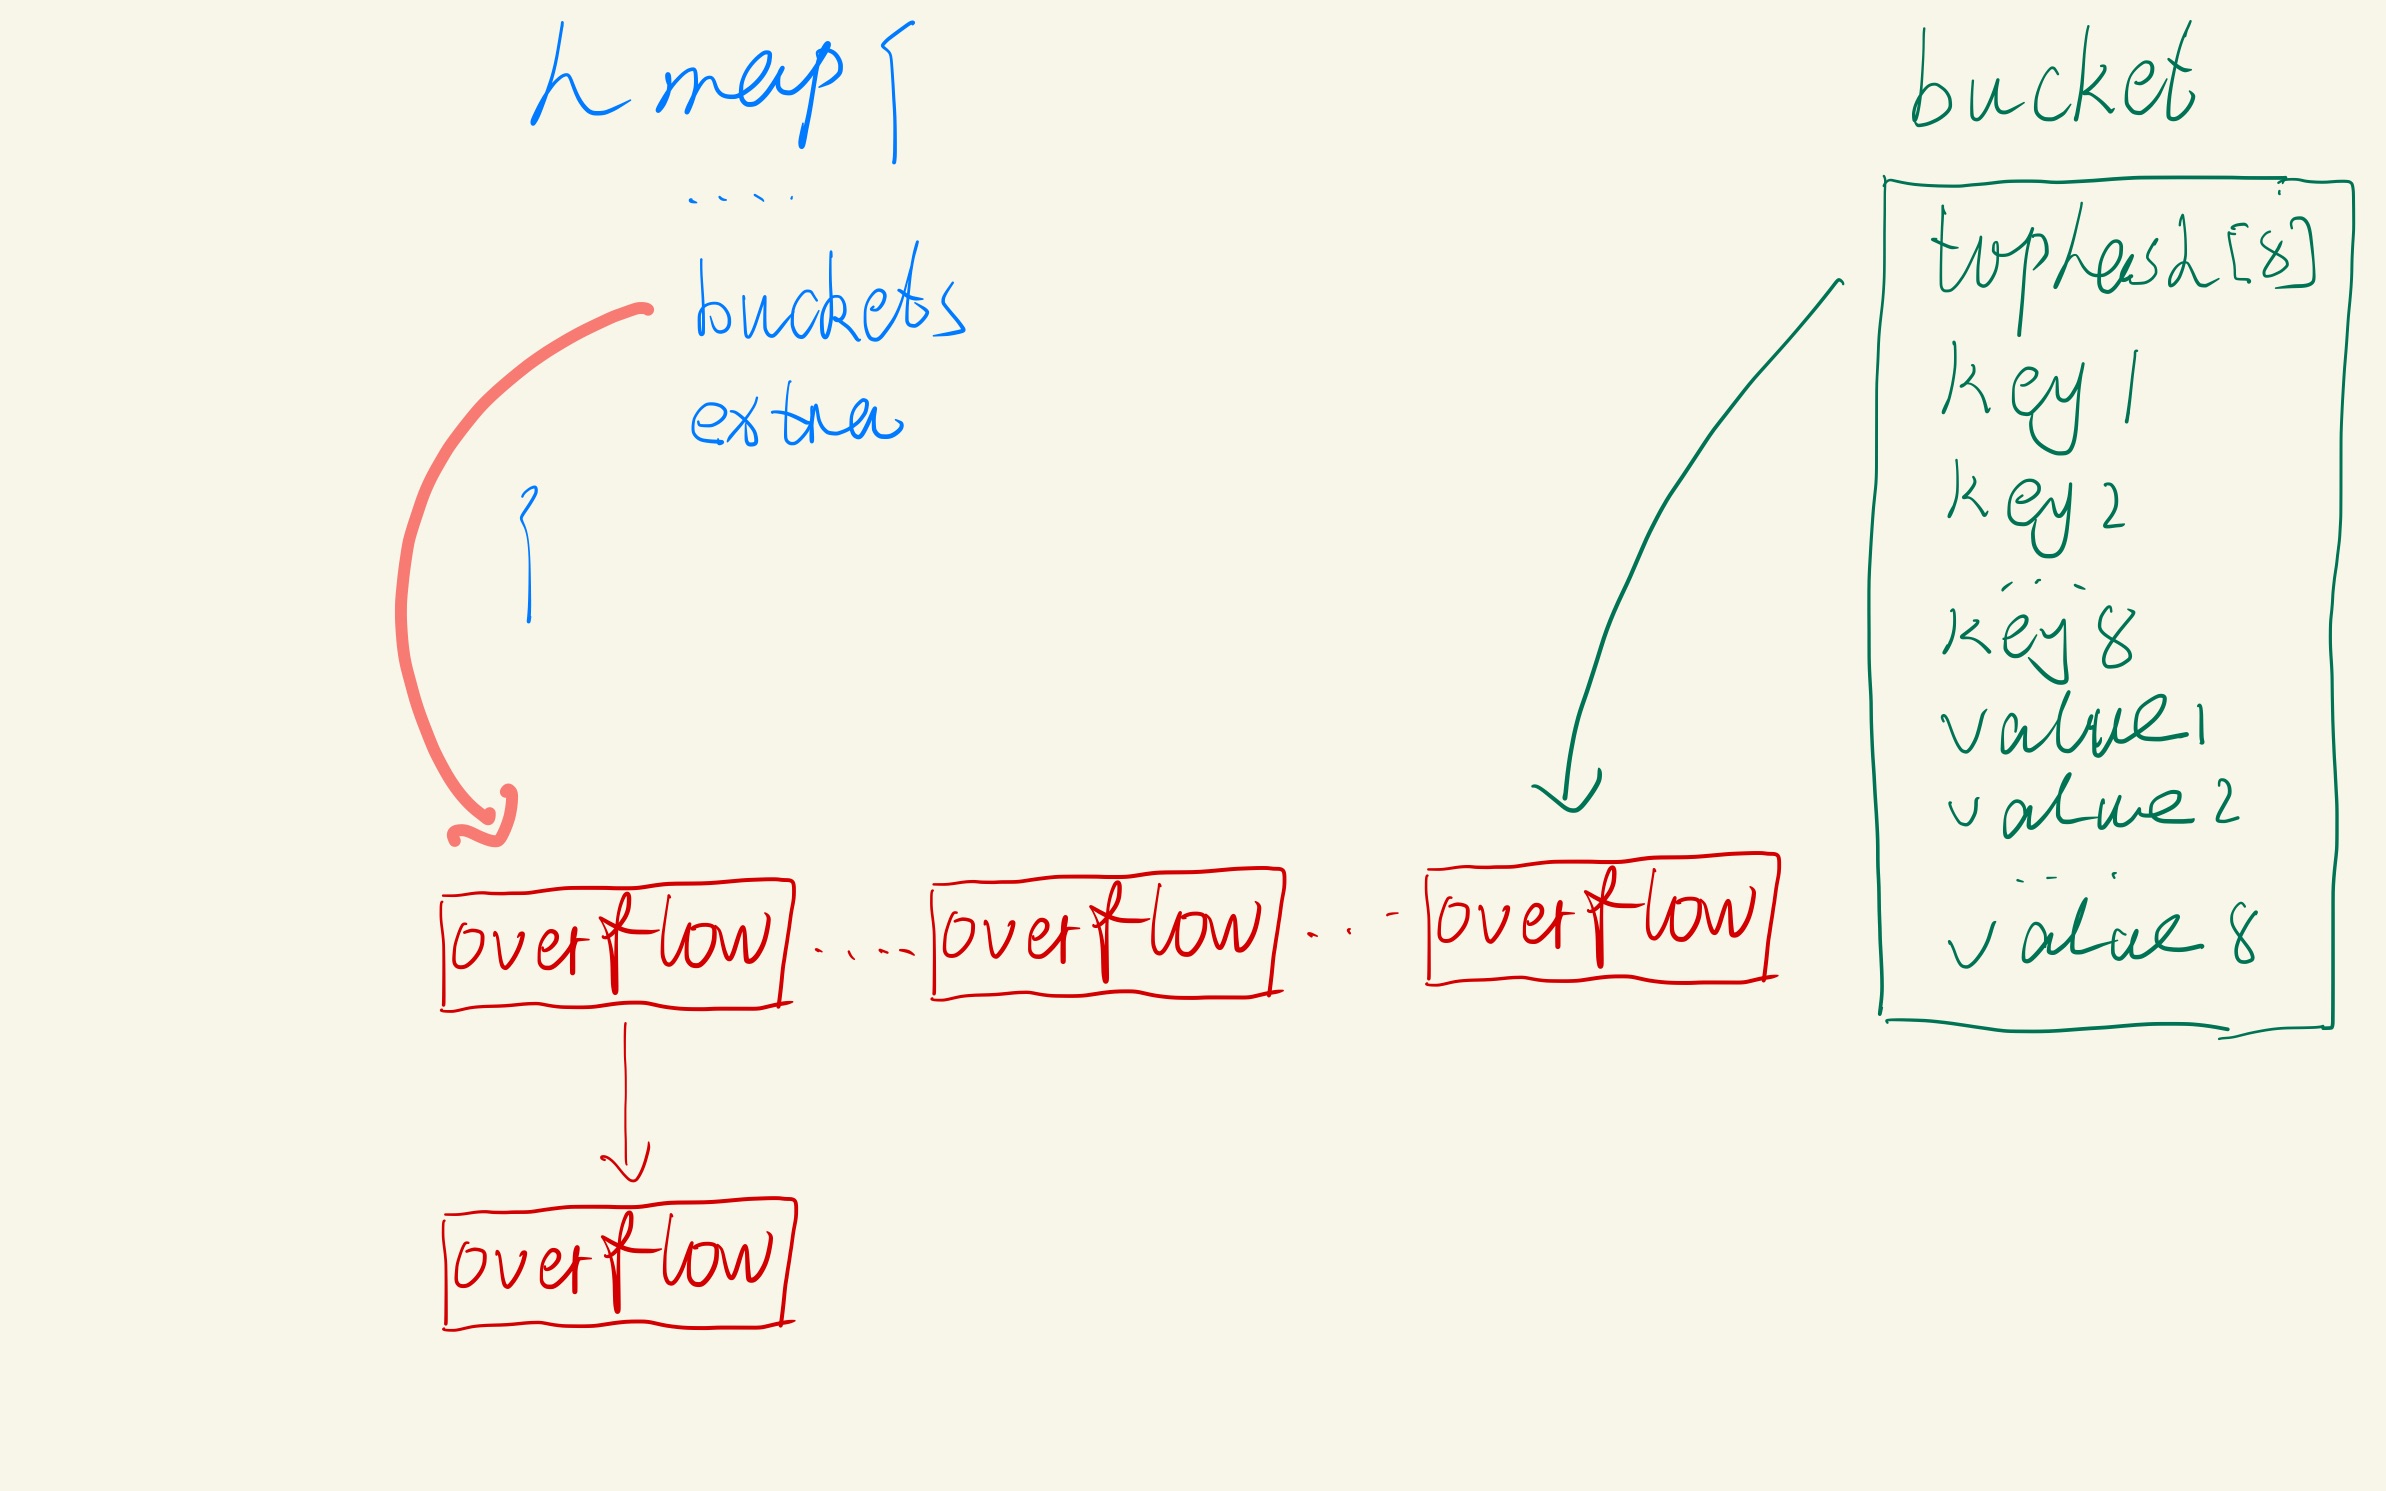 hmap{
.....
buckets
extra
{
bucket
tophash[8]
key 1
key 2
...
key 8
value 1
value 2
...
value 8
overflow .... overflow ... overflow
overflow